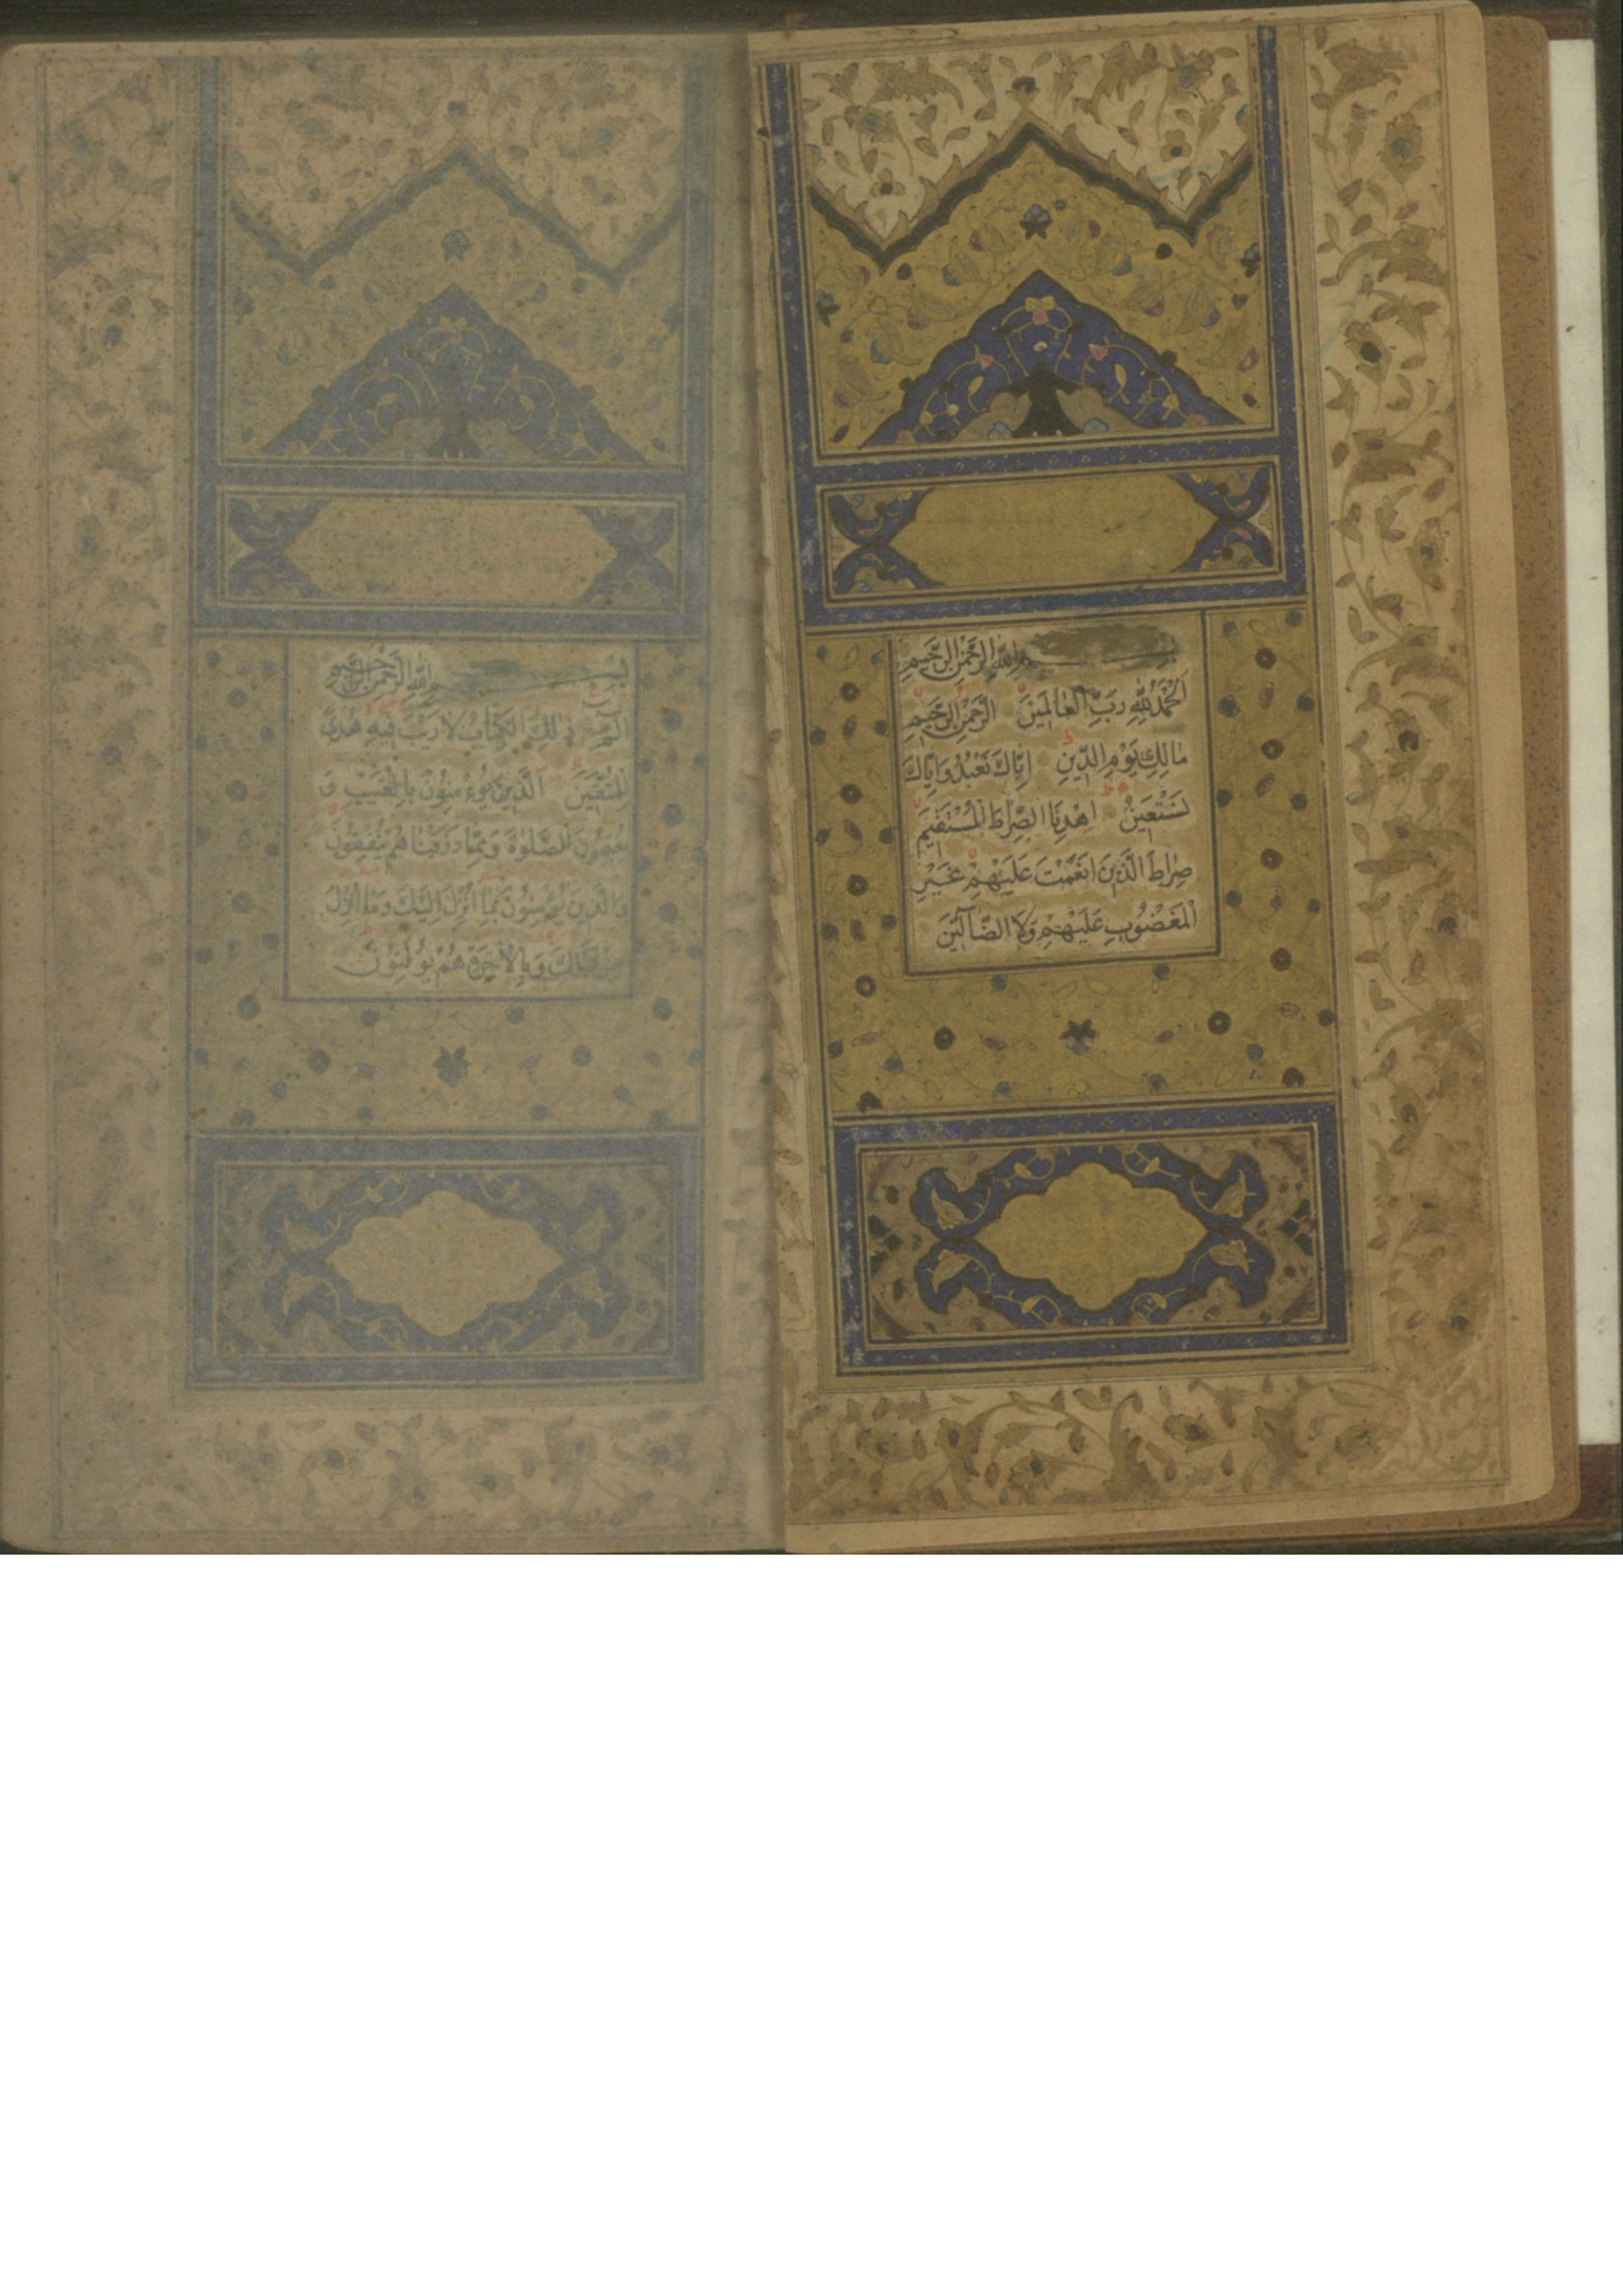 بِسْمِ اللّٰهِ الرَّحْمٰنِ الرَّحِيمِ
اَلْحَمْدُ لِلّٰهِ رَبِّ الْعَالَمِينَ الرَّحْمٰنِ الرَّحِيمِ
مَالِكِ يَوْمِ الدِّينِ اِيَّاكَ نَعْبُدُ وَاِيَّاكَ
نَسْتَعِينُ اِهْدِنَا الصِّرَاطَ الْمُسْتَقِيمَ
صِرَاطَ الَّذِينَ اَنْعَمْتَ عَلَيْهِمْ غَيْرِ
الْمَغْضُوبِ عَلَيْهِمْ وَلَا الضَّآلِّينَ
بِسْمِ اللّٰهِ الرَّحْمٰنِ الرَّحِيمِ
الٓمٓ ذٰلِكَ الْكِتَابُ لَا رَيْبَ فِيهِ هُدًى
لِلْمُتَّقِينَ اَلَّذِينَ يُؤْمِنُونَ بِالْغَيْبِ وَ
يُقِيمُونَ الصَّلٰوةَ وَمِمَّا رَزَقْنَاهُمْ يُنْفِقُونَ
وَالَّذِينَ يُؤْمِنُونَ بِمَا اُنْزِلَ اِلَيْكَ وَمَا اُنْزِلَ
مِنْ قَبْلِكَ وَبِالْاٰخِرَةِ هُمْ يُوقِنُونَ